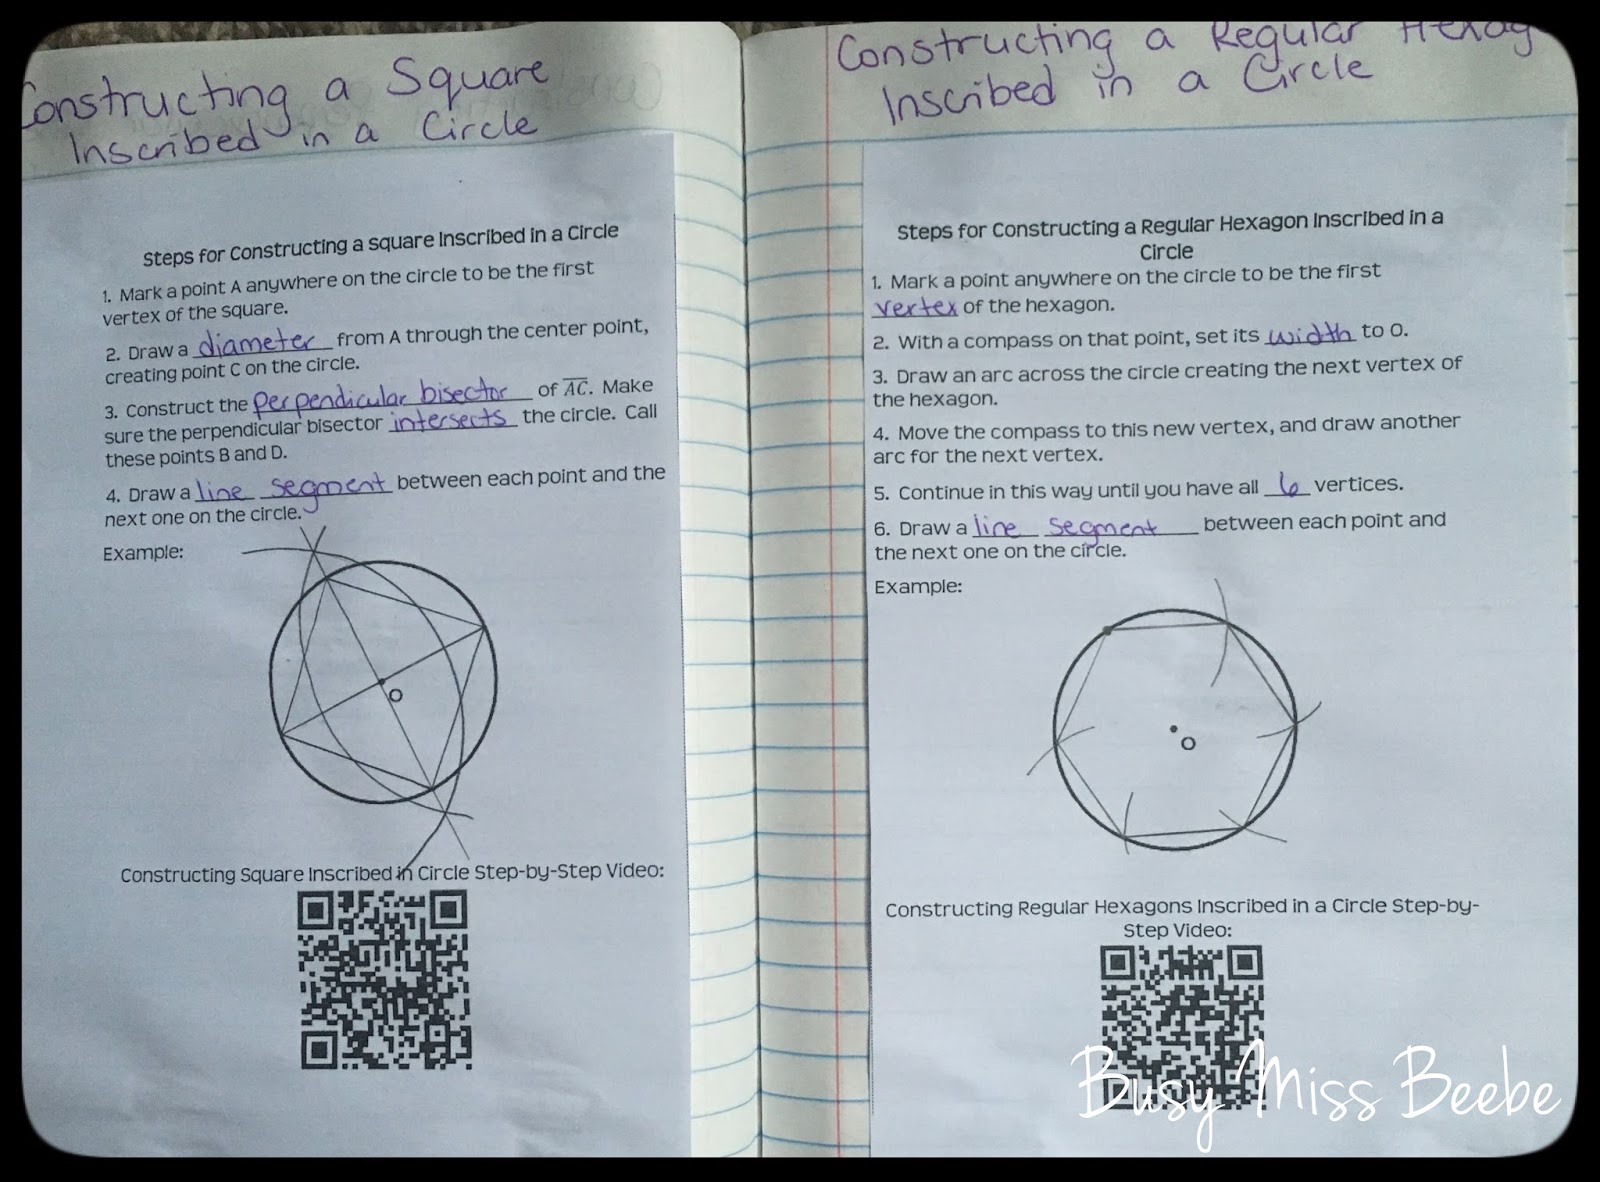 Constructing a Square
Inscribed in a Circle
Steps for Constructing a square Inscribed in a Circle
1. Mark a point A anywhere on the circle to be the first
vertex of the square.
2. Draw a diameter from A through the center point,
creating point C on the circle.
3. Construct the perpendicular bisector of AC. Make
sure the perpendicular bisector intersects the circle. Call
these points B and D.
4. Draw a line segment between each point and the
next one on the circle.
Example:
O
Constructing Square Inscribed in Circle Step-by-Step Video:
Constructing a Regular Hexag
Inscribed in a Circle
Steps for Constructing a Regular Hexagon Inscribed in a
Circle
1. Mark a point anywhere on the circle to be the first
vertex of the hexagon.
2. With a compass on that point, set its width to O.
3. Draw an arc across the circle creating the next vertex of
the hexagon.
4. Move the compass to this new vertex, and draw another
arc for the next vertex.
5. Continue in this way until you have all 6 vertices.
6. Draw a line segment between each point and
the next one on the circle.
Example:
O
Constructing Regular Hexagons Inscribed in a Circle Step-by-
Step Video:
Busy Miss Beebe